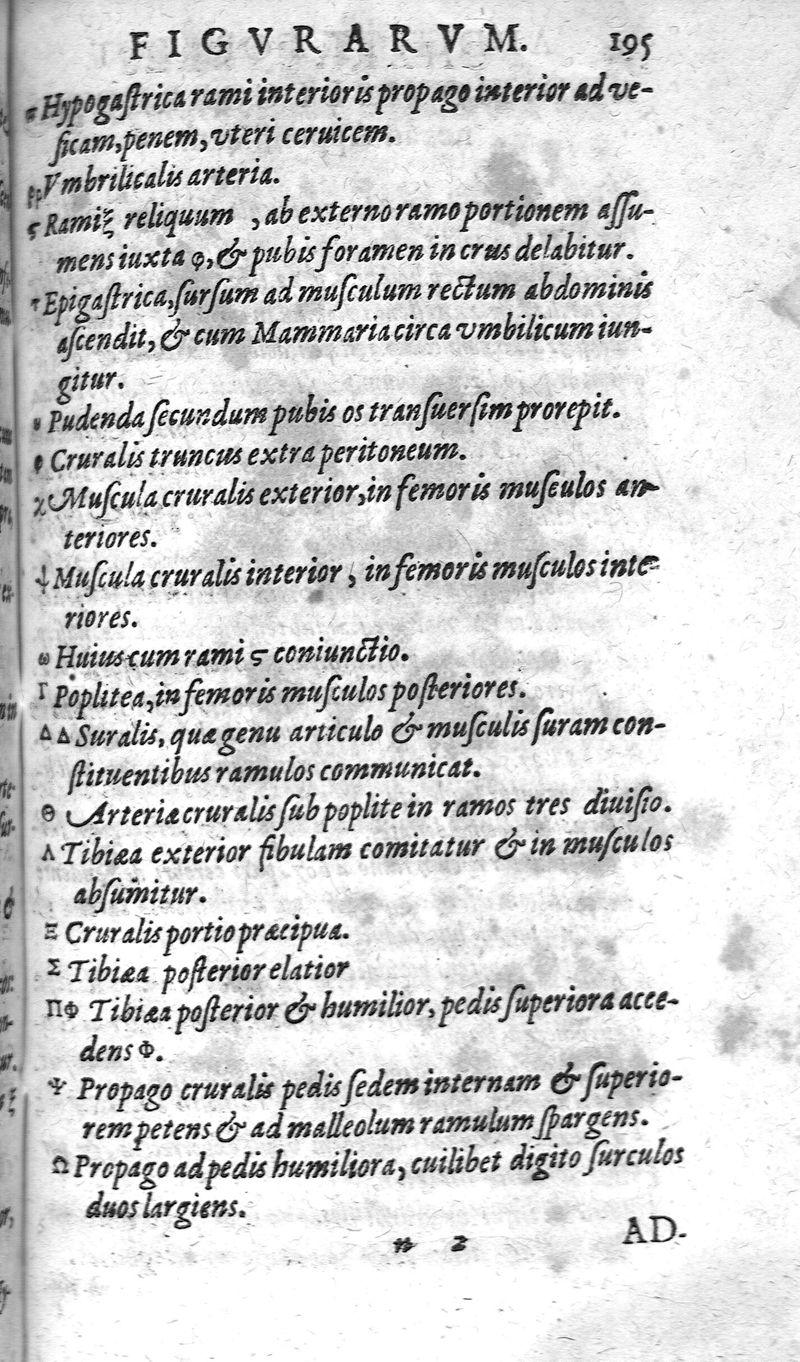 FIGVRARVM. 195
π Hypogaſtrica rami interioris propago interior ad ve-
ſicam, penem, vteri ceruicem.
ρρ Vmbrilicalis arteria.
ς Rami ξ reliquum , ab externo ramo portionem aſſu-
mens iuxta φ, & pubis foramen in crus delabitur.
τ Epigaſtrica, ſurſum ad muſculum rectum abdominis
aſcendit, & cum Mammaria circa vmbilicum iun-
gitur.
υ Pudenda ſecundum pubis os tranſuerſim prorepit.
φ Cruralis truncus extra peritoneum.
χ Muſcula cruralis exterior, in femoris muſculos an-
teriores.
ψ Muſcula cruralis interior, in femoris muſculos inte-
riores.
ω Huius cum rami ς coniunctio.
Γ Poplitea, in femoris muſculos poſteriores.
Δ Δ Suralis, quæ genu articulo & muſculis ſuram con-
ſtituentibus ramulos communicat.
Θ Arteriæ cruralis ſub poplite in ramos tres diuiſio.
Λ Tibiæa exterior fibulam comitatur & in muſculos
abſumitur.
Ξ Cruralis portio præcipua.
Σ Tibiæa poſterior elatior
ΠΦ Tibiæa poſterior & humilior, pedis ſuperiora acce-
dens Φ.
Ψ Propago cruralis pedis ſedem internam & ſuperio-
rem petens & ad malleolum ramulum ſpargens.
Ω Propago ad pedis humiliora, cuilibet digito ſurculos
duos largiens.
n 2 AD-